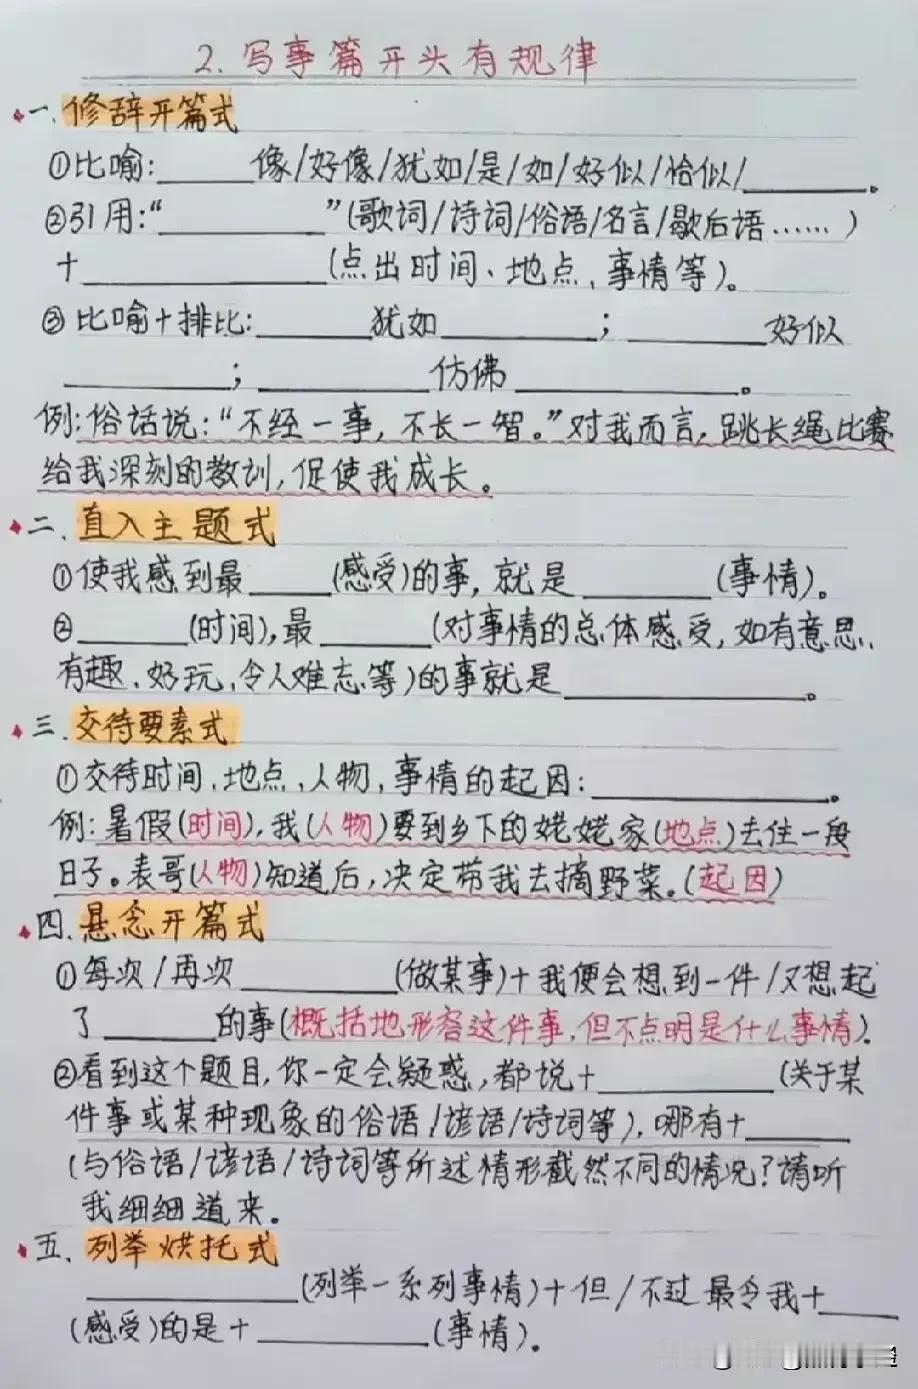 2.写事篇开头有规律
一.修辞开篇式
①比喻:______像/好像/犹如/是/如/好似/恰似/________。
②引用:“__________”(歌词/诗词/俗语/名言/歇后语……)
+______________(点出时间、地点、事情等)。
③比喻+排比:_______犹如_________;________好似
__________;__________仿佛____________。
例:俗话说:“不经一事,不长一智。”对我而言,跳长绳比赛
给我深刻的教训,促使我成长。
二.直入主题式
①使我感到最_____(感受)的事,就是________(事情)。
②______(时间),最______(对事情的总体感受,如有意思、
有趣、好玩、令人难忘等)的事就是______________。
三.交待要素式
①交待时间、地点、人物,事情的起因:______________。
例:暑假(时间),我(人物)要到乡下的姥姥家(地点)去住一段
日子。表哥(人物)知道后,决定带我去摘野菜。(起因)
四.悬念开篇式
①每次/再次_________(做某事)+我便会想到一件/又想起
了_______的事(概括地形容这件事,但不点明是什么事情)。
②看到这个题目,你一定会疑惑,都说+__________(关于某
件事或某种现象的俗语/谚语/诗词等),哪有+______
(与俗语/谚语/诗词等所述情形截然不同的情况?请听
我细细道来。
五.列举烘托式
____________(列举一系列事情)+但/不过最令我+____
(感受)的是+__________(事情)。